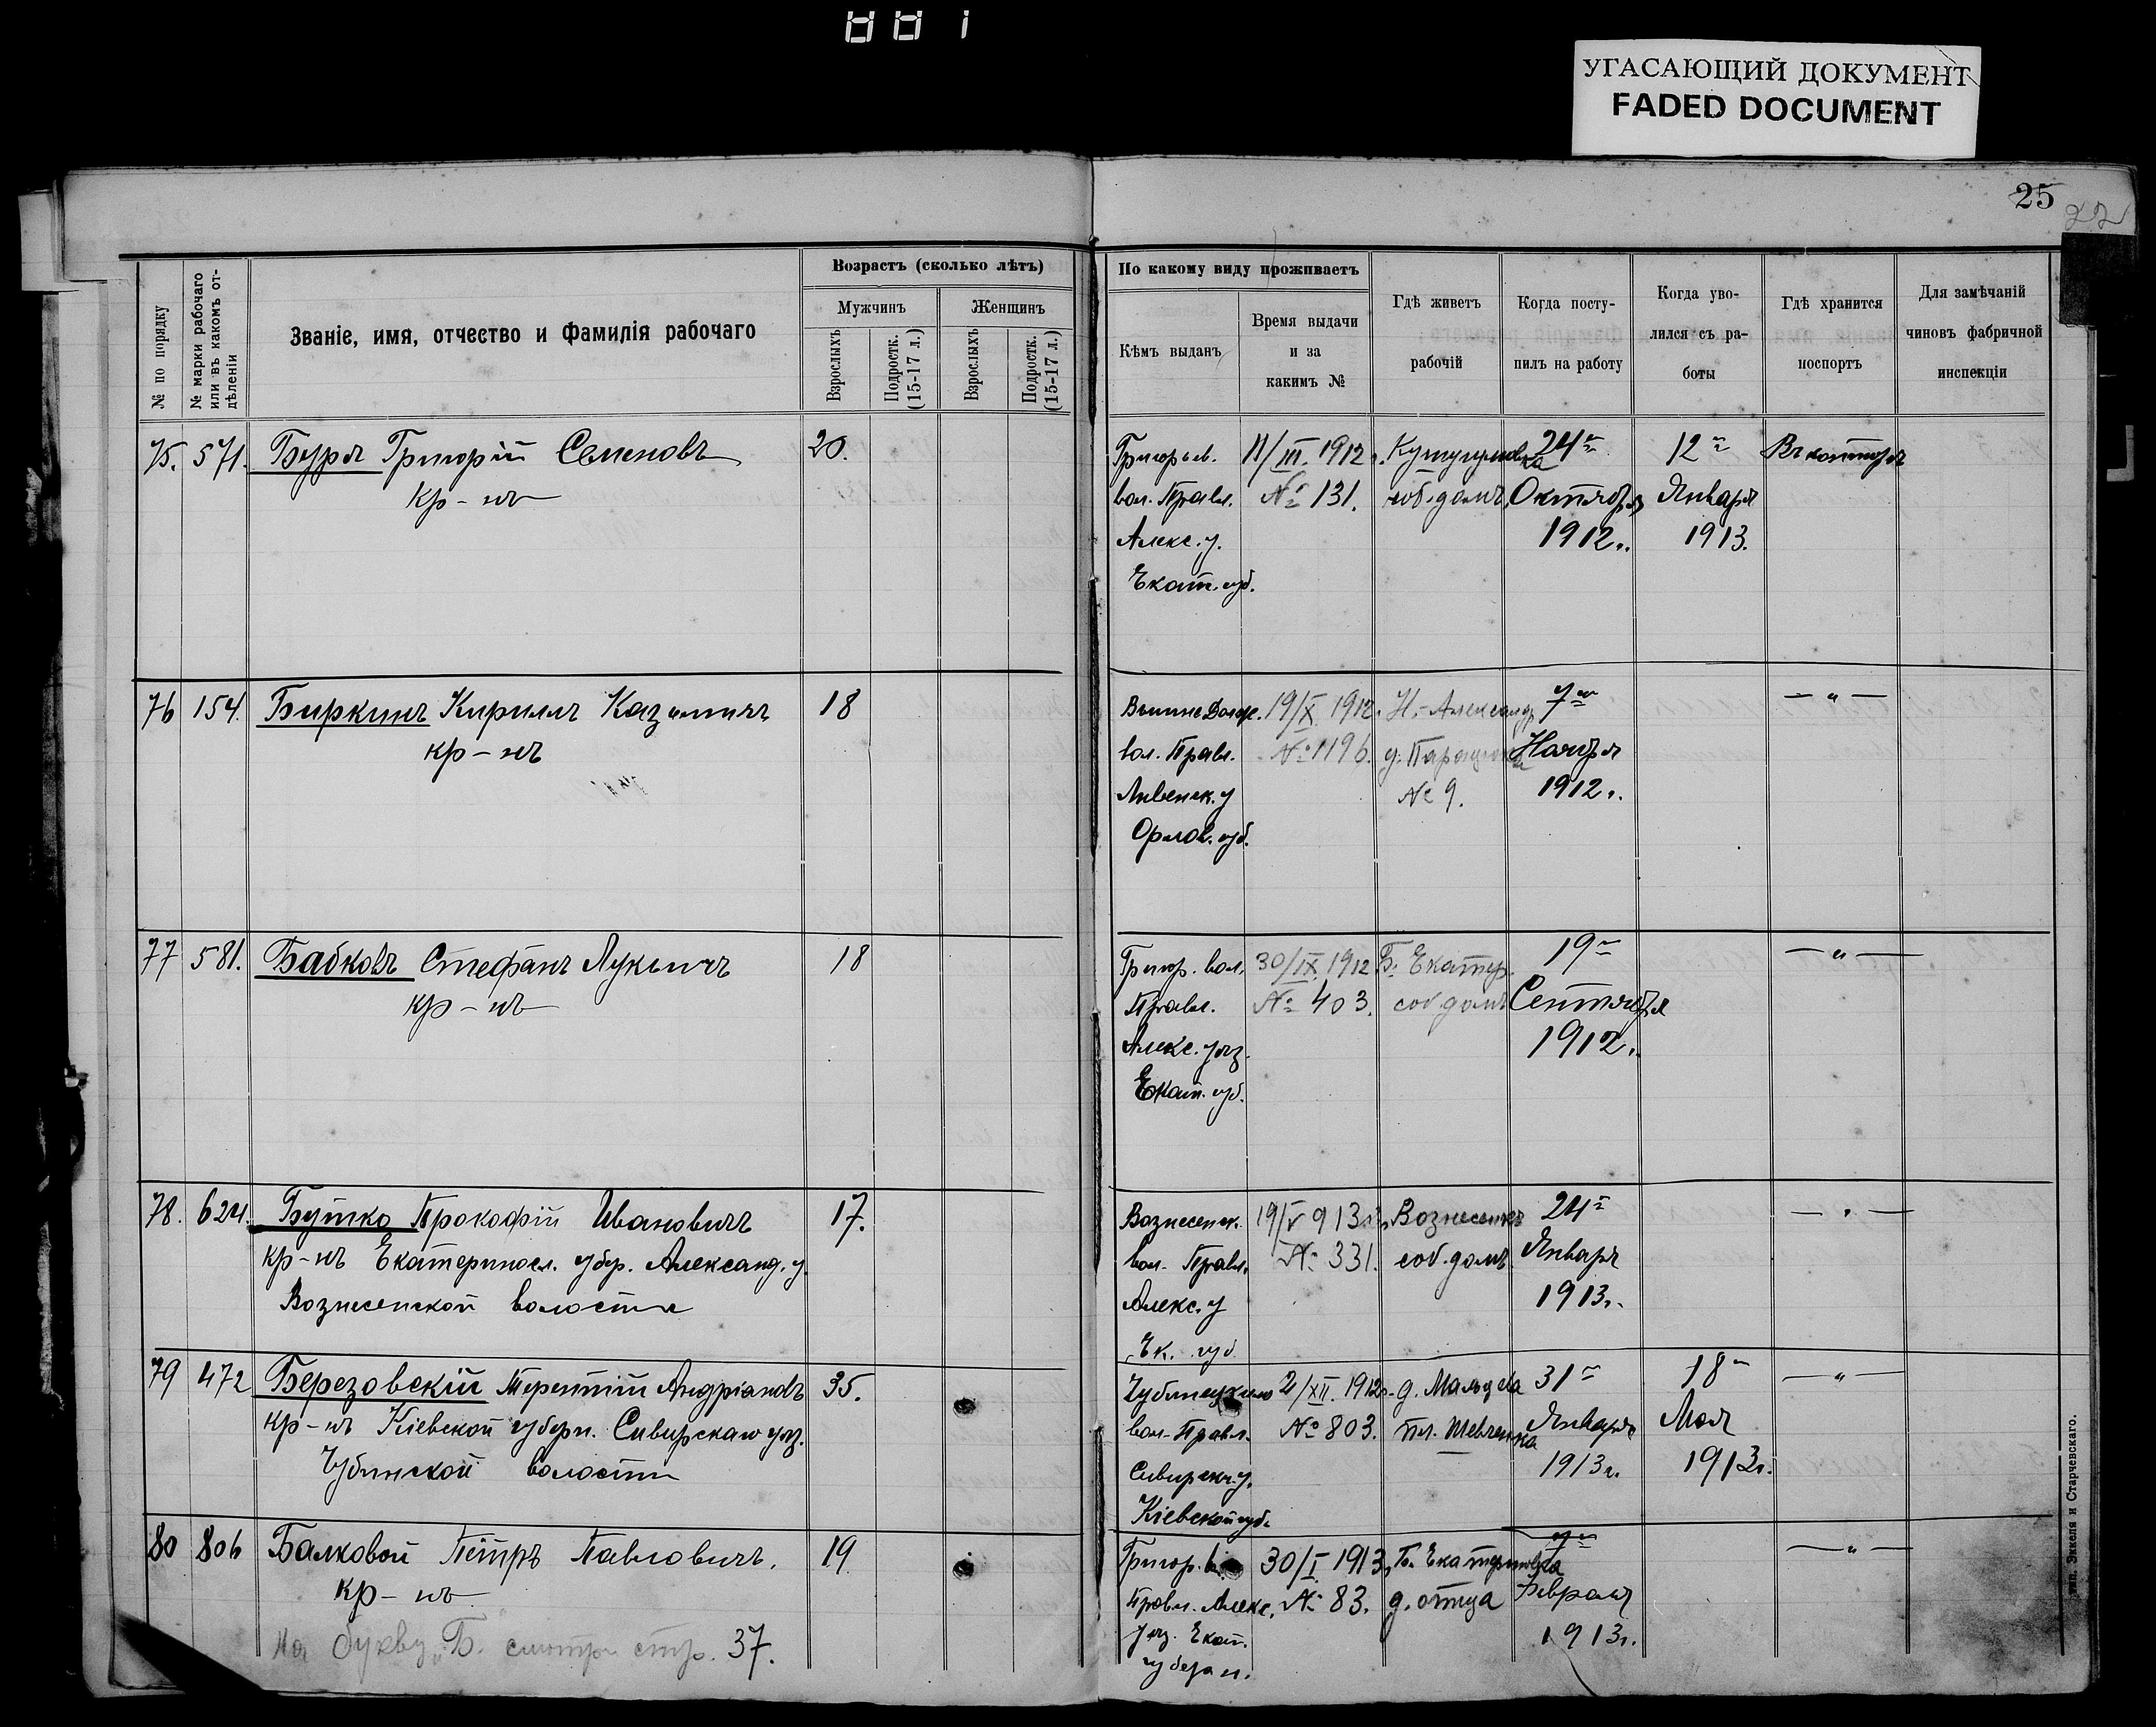 УГАСАЮЩИЙ ДОКУМЕНТ
FADED DOCUMENT
25
22
№ по порядку
№ марки рабочаго или въ какомъ отдѣленіи
Званіе, имя, отчество и фамилія рабочаго
Возрастъ (сколько лѣтъ)
Мужчинъ
Женщинъ
Взрослыхъ
Подростк. (15-17 л.)
Взрослыхъ
Подростк. (15-17 л.)
По какому виду проживаетъ
Кѣмъ выданъ
Время выдачи
и за
какимъ №
Гдѣ живетъ
рабочій
Когда посту-
пилъ на работу
Когда уво-
лился съ ра-
боты
Гдѣ хранится
поспортъ
Для замѣчаній
чиновъ фабричной
инспекціи
75. 571. Буря Григорій Семеновъ 20.
кр-нъ
Григорьев. 11/III. 1912 г. 24го 12го Въ конторѣ
вол. Правл. № 131. соб. домъ Октября Января
Алекс. у. 1912 г. 1913.
Екат. губ.
76 154. Биркинъ Кириллъ 18
кр-нъ
19/X 1912. Н.-Александр. 7го — " —
вол. Правл. № 1196. Ноября
Ливенск. у № 9. 1912 г.
Орлов. губ.
77 581. Бабковъ Стефанъ Лукьичъ 18
кр-нъ
Григор. вол. 30/IX. 1912 Б. Екатер. 19го — " —
Правл. № 403. соб домъ Сентября
Алекс. уѣз. 1912 г.
Екат. губ.
78. 624. Бутко Прокофій Ивановичъ 17.
кр-нъ Екатеринос. губер. Александ. у.
Вознесенской волости
Вознесенск. 19/V 913 г. Вознесенка 24го — " —
вол. Правл. № 331. соб. домъ Января
Алекс. у 1913 г.
Ек. губ
79 472 Березовскій Терентій Андріановъ 35.
кр-нъ Кіевской губерн. Сквирскаго уѣз.
Чубинской волости
2/XII. 1912 г. д. Мальцева 31го 18го — " —
вол. Правл. № 803. пл. Шевченка Января Мая
Сквирск. у. 1913 г. 1913 г.
Кіевской губ.
80 806 Балковой Пётръ Павловичъ. 19
кр-нъ
Григор. в. 30/I 1913 г. Б. Екатериновка 7го — " —
Правл. Алекс. № 83. д. отца Февраля
уѣз. Екат. 1913 г.
губерн.
На букву „Б. смотр. стр. 37.
тип. Эккеля и Старчевскаго.